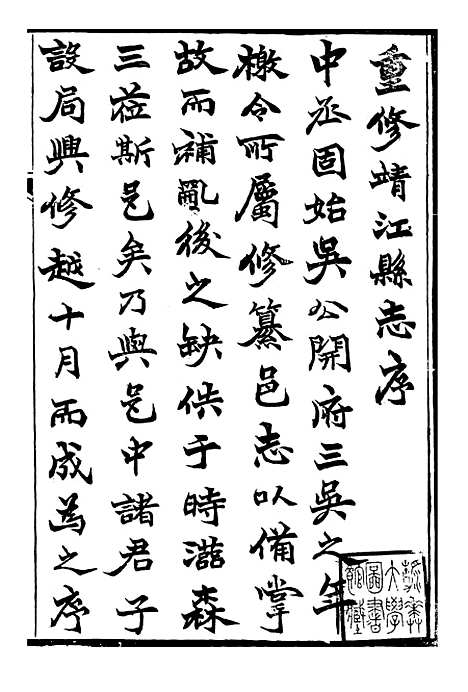 重修靖江縣志序
中丞固始吳公開府三吳之年
檄令所屬修纂邑志以備掌
故而補亂後之缺佚于時滋森
三蒞斯邑矣乃與邑中諸君子
設局興修越十月而成為之序
大學
圖書